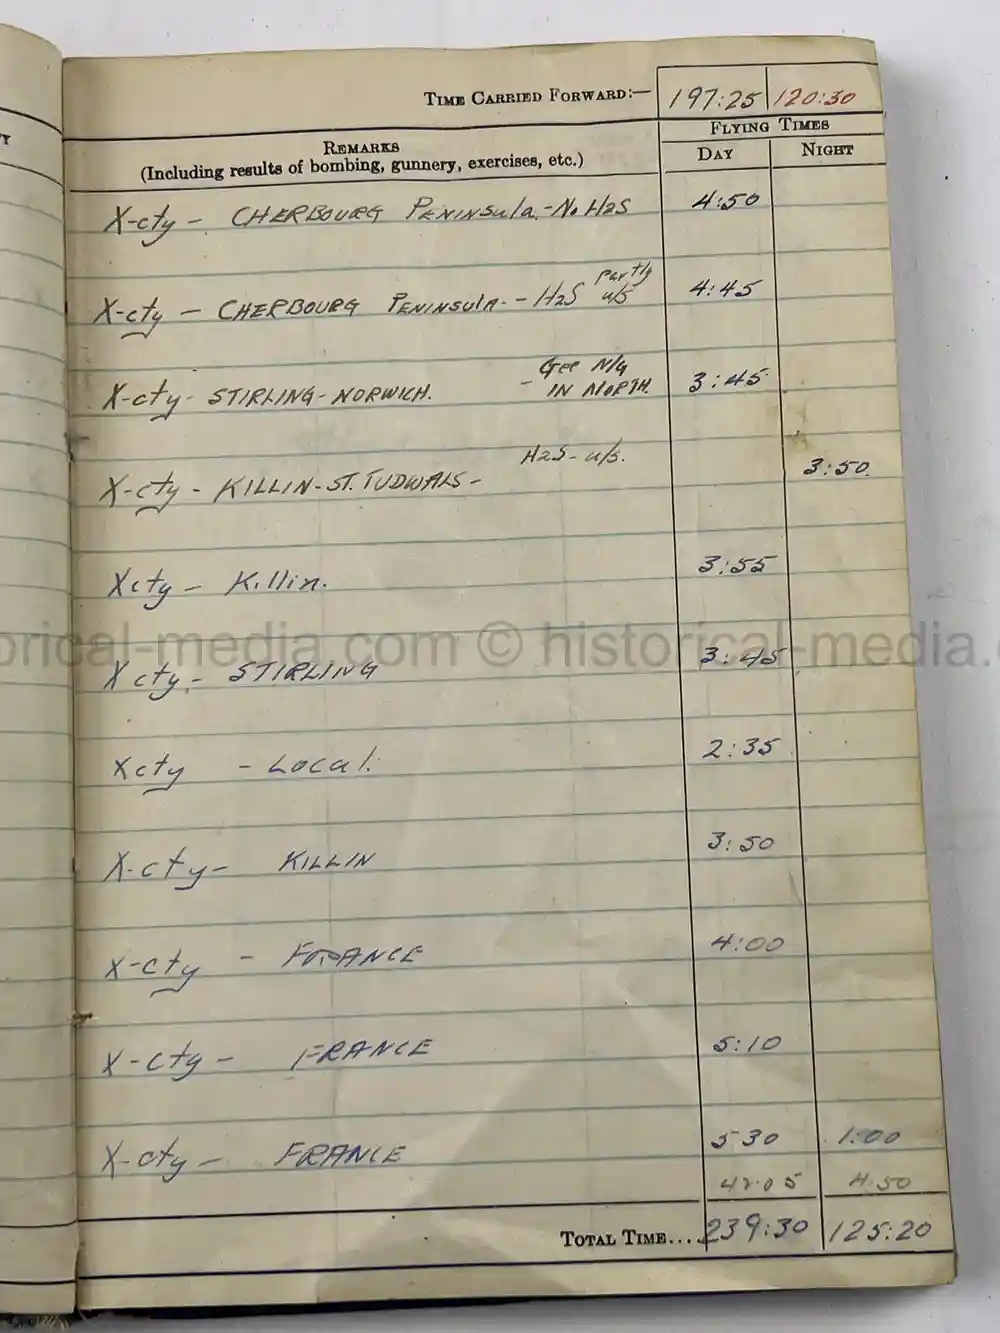 Y
TIME CARRIED FORWARD:— 197:25 120:30
REMARKS
(Including results of bombing, gunnery, exercises, etc.)
FLYING TIMES
DAY NIGHT
X-cty - CHERBOURG PENINSULA.- No H2S 4:50
partly
X-cty - CHERBOURG PENINSULA - - H2S u/s 4:45
Gee N/G
X-cty - STIRLING - NORWICH. - IN NORTH. 3:45
H2S - u/s.
X-cty - KILLIN - ST. TUDWALS - 3:50.
Xcty - Killin. 3:55
orical-media.com © historical-media.c
Xcty - STIRLING 3:45
Xcty - LOCAL. 2:35
X-cty - KILLIN 3:50
X-cty - FRANCE 4:00
X-cty - FRANCE 5:10
X-cty - FRANCE 5 30 1:00
42.05 4.50
TOTAL TIME.... 239:30 125:20